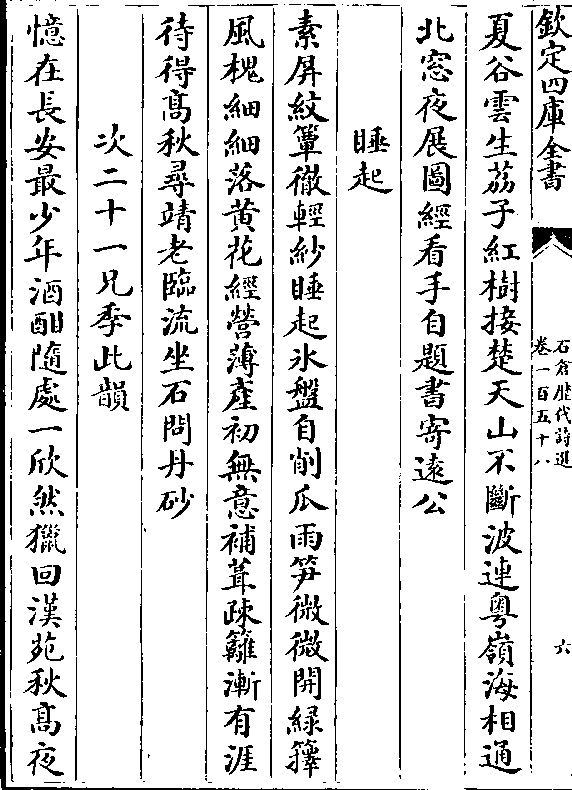 欽定四庫全書
石倉歷代詩選
卷一百五十八
六
夏谷雲生荔子紅樹接楚天山不斷波連粤嶺海相通
北窓夜展圖經看手自題書寄逺公
睡起
素屏紋簟徹輕紗睡起氷盤自削瓜雨笋微微開緑籜
風槐細細落黄花經營薄産初無意補葺疎籬漸有涯
待得髙秋尋靖老臨流坐石問丹砂
次二十一兄季此韻
憶在長安最少年酒酣隨處一欣然獵回漢苑秋髙夜